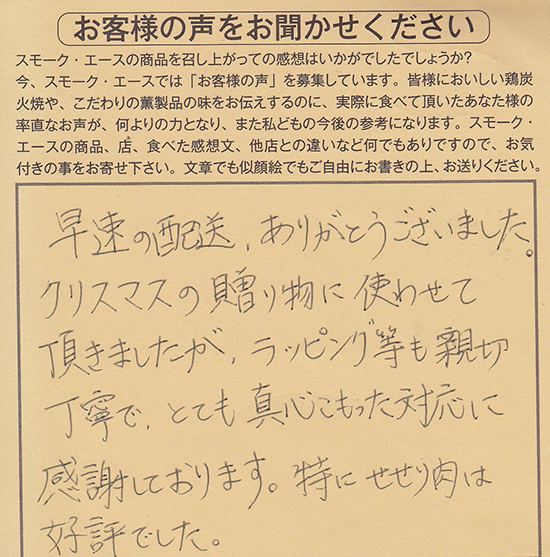 お客様の声をお聞かせください
スモーク・エースの商品を召し上がっての感想はいかがでしたでしょうか?
今、スモーク・エースでは「お客様の声」を募集しています。皆様においしい鶏炭
火焼や、こだわりの薫製品の味をお伝えするのに、実際に食べて頂いたあなた様の
率直なお声が、何よりの力となり、また私どもの今後の参考になります。スモーク・
エースの商品、店、食べた感想文、他店との違いなど何でもありですので、お気
付きの事をお寄せ下さい。文章でも似顔絵でもご自由にお書きの上、お送りください。
早速の配送、ありがとうございました。
クリスマスの贈り物に使わせて
頂きましたが、ラッピング等も親切
丁寧で、とても真心こもった対応に
感謝しております。特にせせり肉は
好評でした。